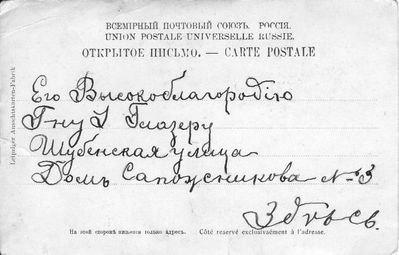 ВСЕМІРНЫЙ ПОЧТОВЫЙ СОЮЗЪ. РОССІЯ.
UNION POSTALE UNIVERSELLE RUSSIE.
ОТКРЫТОЕ ПИСЬМО. — CARTE POSTALE
Его Высокоблагородію
Гну І Глазеру
Шубенская улица
Домъ Сапожникова № 3
Здѣсь.
На этой сторонѣ пишется только адресъ. Côté reservé exclusivaément à l'adresse.
Leipziger Ansichtskarten-Fabrik